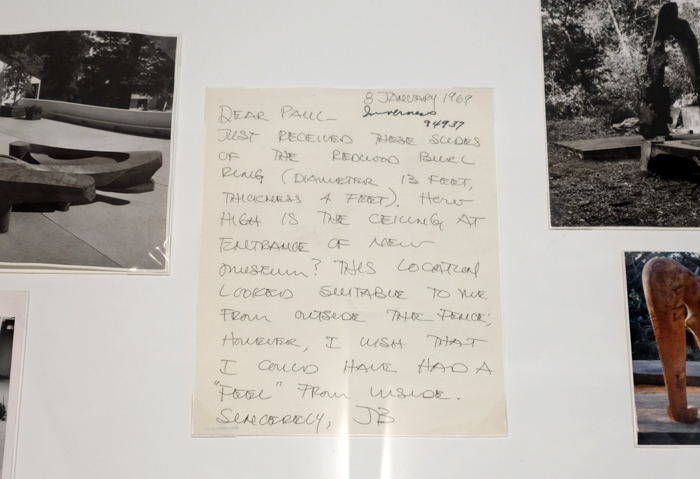 8 JANUARY 1969
Inverness
94937
DEAR PAUL–
JUST RECEIVED THESE SLIDES
OF THE REDWOOD BURL
RING (DIAMETER 13 FEET,
THICKNESS 4 FEET). HOW
HIGH IS THE CEILING AT
ENTRANCE OF NEW
MUSEUM? THIS LOCATION
LOOKED SUITABLE TO ME
FROM OUTSIDE THE FENCE;
HOWEVER, I WISH THAT
I COULD HAVE HAD A
"FEEL" FROM INSIDE.
SINCERELY, JB